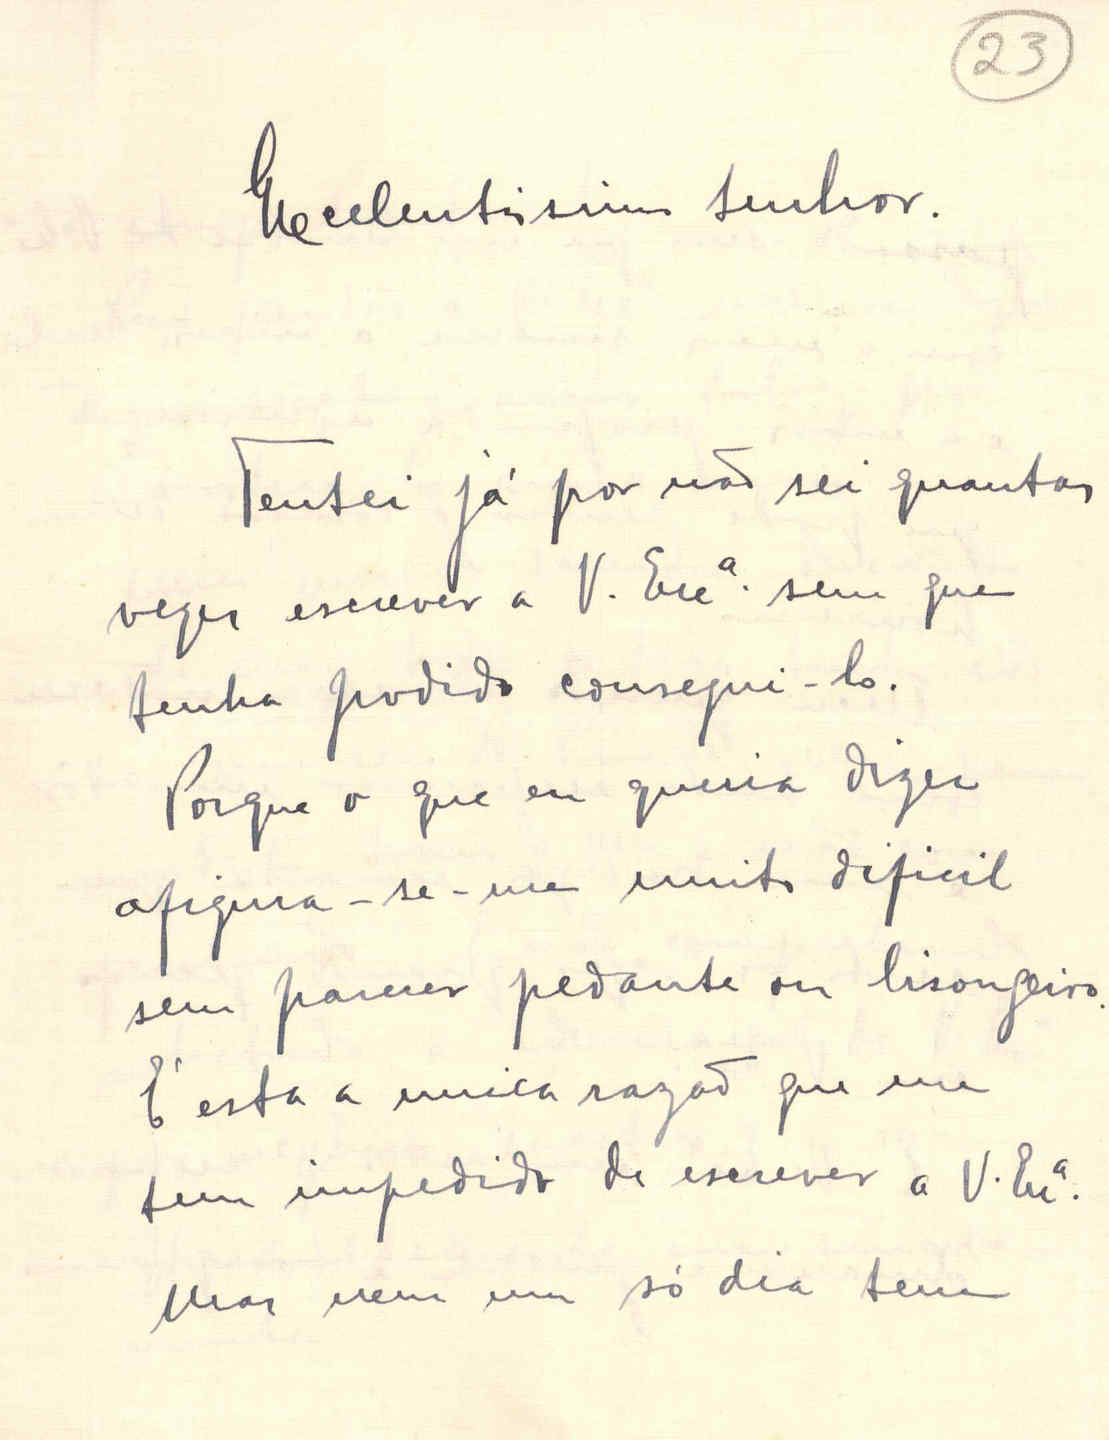 23
Excelentissimo senhor.
Tentei já por não sei quantas
vezes escrever a V. Exª. sem que
tenha podido consegui-lo.
Porque o que eu queria dizer
afigura-se-me muito dificil
sem parecer pedante ou lisongeiro.
É esta a unica razão que me
tem impedido de escrever a V. Exª.
Mas nem um só dia tem